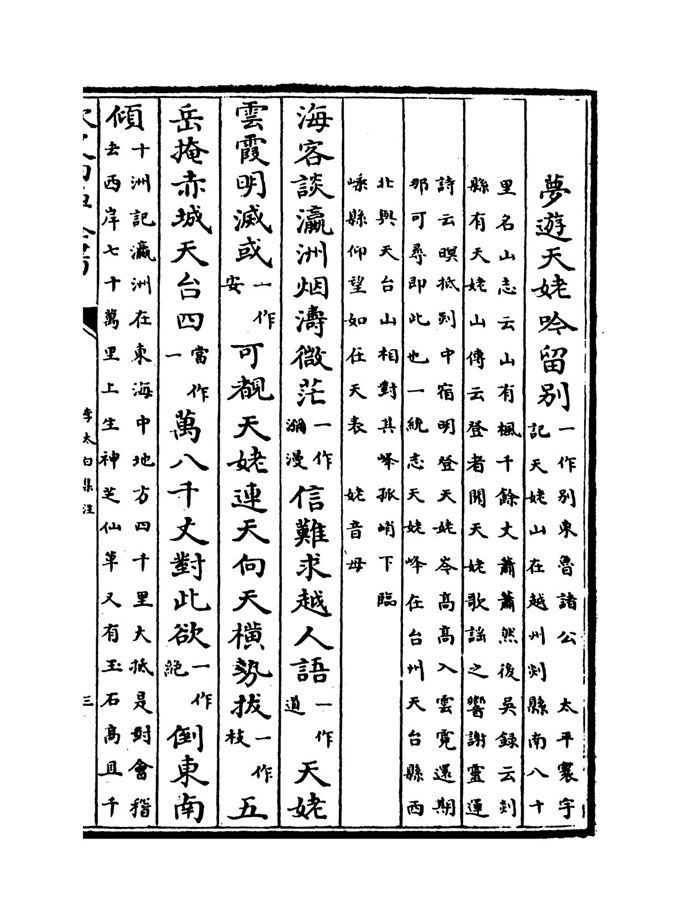 夢遊天姥吟留別一作別東魯諸公 太平寰宇
記天姥山在越州剡縣南八十
里名山志云山有楓千餘丈蕭蕭然後吳録云剡
縣有天姥山傳云登者聞天姥歌謠之響謝靈運
詩云暝抵剡中宿明登天姥岑高高入雲霓還期
那可尋即此也一統志天姥峰在台州天台縣西
北與天台山相對其峰孤峭下臨
嵊縣仰望如在天表 姥音母
海客談瀛洲烟濤微茫一作瀰漫信難求越人語一作道天姥
雲霞明滅或一作安可覩天姥連天向天橫勢拔一作枝五
岳掩赤城天台四當作一萬八千丈對此欲一作絶倒東南
傾十洲記瀛洲在東海中地方四千里大抵是對會稽
去西岸七十萬里上生神芝仙草又有玉石高且千
李太白集注
三